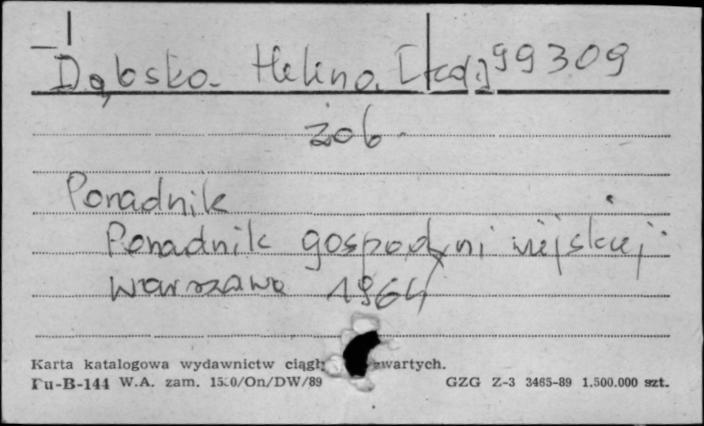 Dąbska Helina [red.] 99309
zob.
Poradnik
Poradnik gospodyni wiejskiej
Warszawa 1964
Karta katalogowa wydawnictw zwartych.
Pu-B-144 W.A. zam. /On/DW/89 GZG Z-3 3465-89 1.500.000 szt.